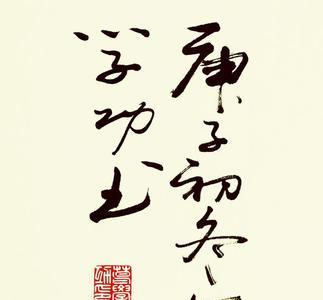 庚子初冬
学功书